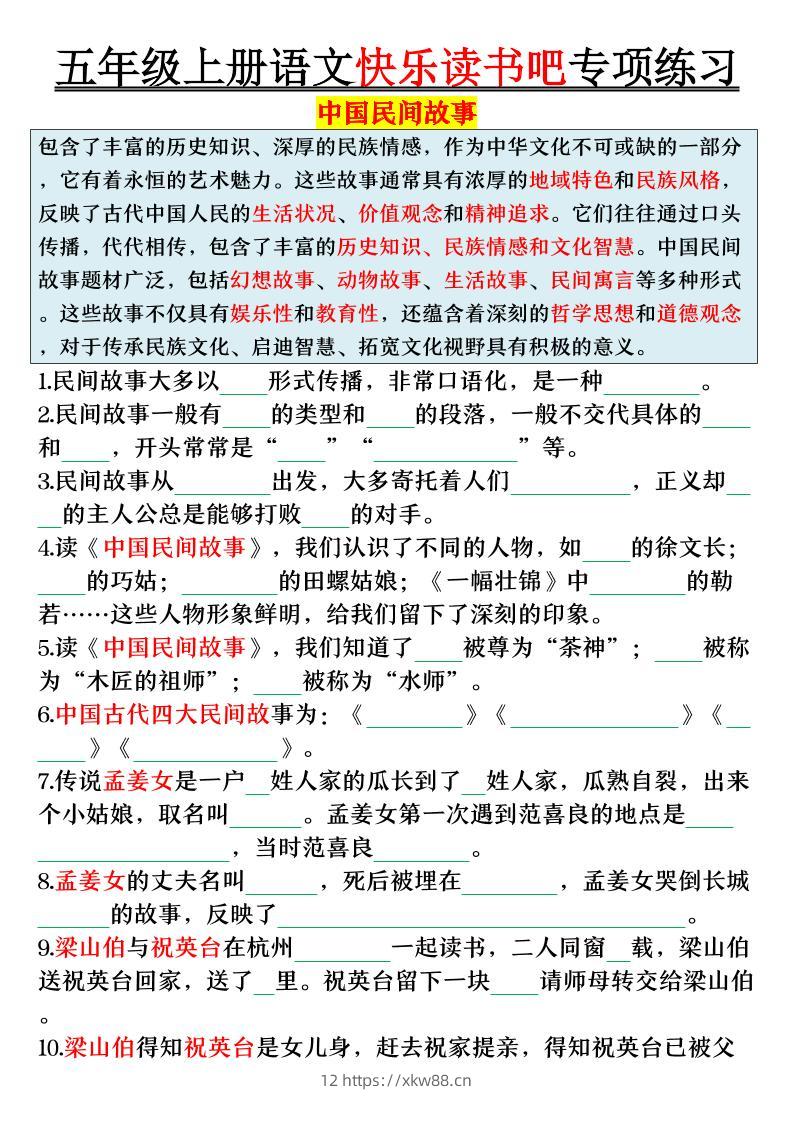 五年级上册语文快乐读书吧专项练习
中国民间故事
包含了丰富的历史知识、深厚的民族情感，作为中华文化不可或缺的一部分
，它有着永恒的艺术魅力。这些故事通常具有浓厚的地域特色和民族风格，
反映了古代中国人民的生活状况、价值观念和精神追求。它们往往通过口头
传播，代代相传，包含了丰富的历史知识、民族情感和文化智慧。中国民间
故事题材广泛，包括幻想故事、动物故事、生活故事、民间寓言等多种形式
。这些故事不仅具有娱乐性和教育性，还蕴含着深刻的哲学思想和道德观念
，对于传承民族文化、启迪智慧、拓宽文化视野具有积极的意义。
1.民间故事大多以____形式传播，非常口语化，是一种________。
2.民间故事一般有____的类型和____的段落，一般不交代具体的____
和____，开头常常是“____”“____________”等。
3.民间故事从________出发，大多寄托着人们__________，正义却__
__的主人公总是能够打败____的对手。
4.读《中国民间故事》，我们认识了不同的人物，如____的徐文长；
____的巧姑；________的田螺姑娘；《一幅壮锦》中________的勒
若……这些人物形象鲜明，给我们留下了深刻的印象。
5.读《中国民间故事》，我们知道了____被尊为“茶神”；____被称
为“木匠的祖师”；____被称为“水师”。
6.中国古代四大民间故事为：《________》《______________》《__
____》《____________》。
7.传说孟姜女是一户__姓人家的瓜长到了__姓人家，瓜熟自裂，出来
个小姑娘，取名叫______。孟姜女第一次遇到范喜良的地点是____
________________，当时范喜良________。
8.孟姜女的丈夫名叫______，死后被埋在________，孟姜女哭倒长城
______的故事，反映了__________________________________。
9.梁山伯与祝英台在杭州________一起读书，二人同窗__载，梁山伯
送祝英台回家，送了__里。祝英台留下一块____请师母转交给梁山伯
。
10.梁山伯得知祝英台是女儿身，赶去祝家提亲，得知祝英台已被父
12 https://xkw88.cn